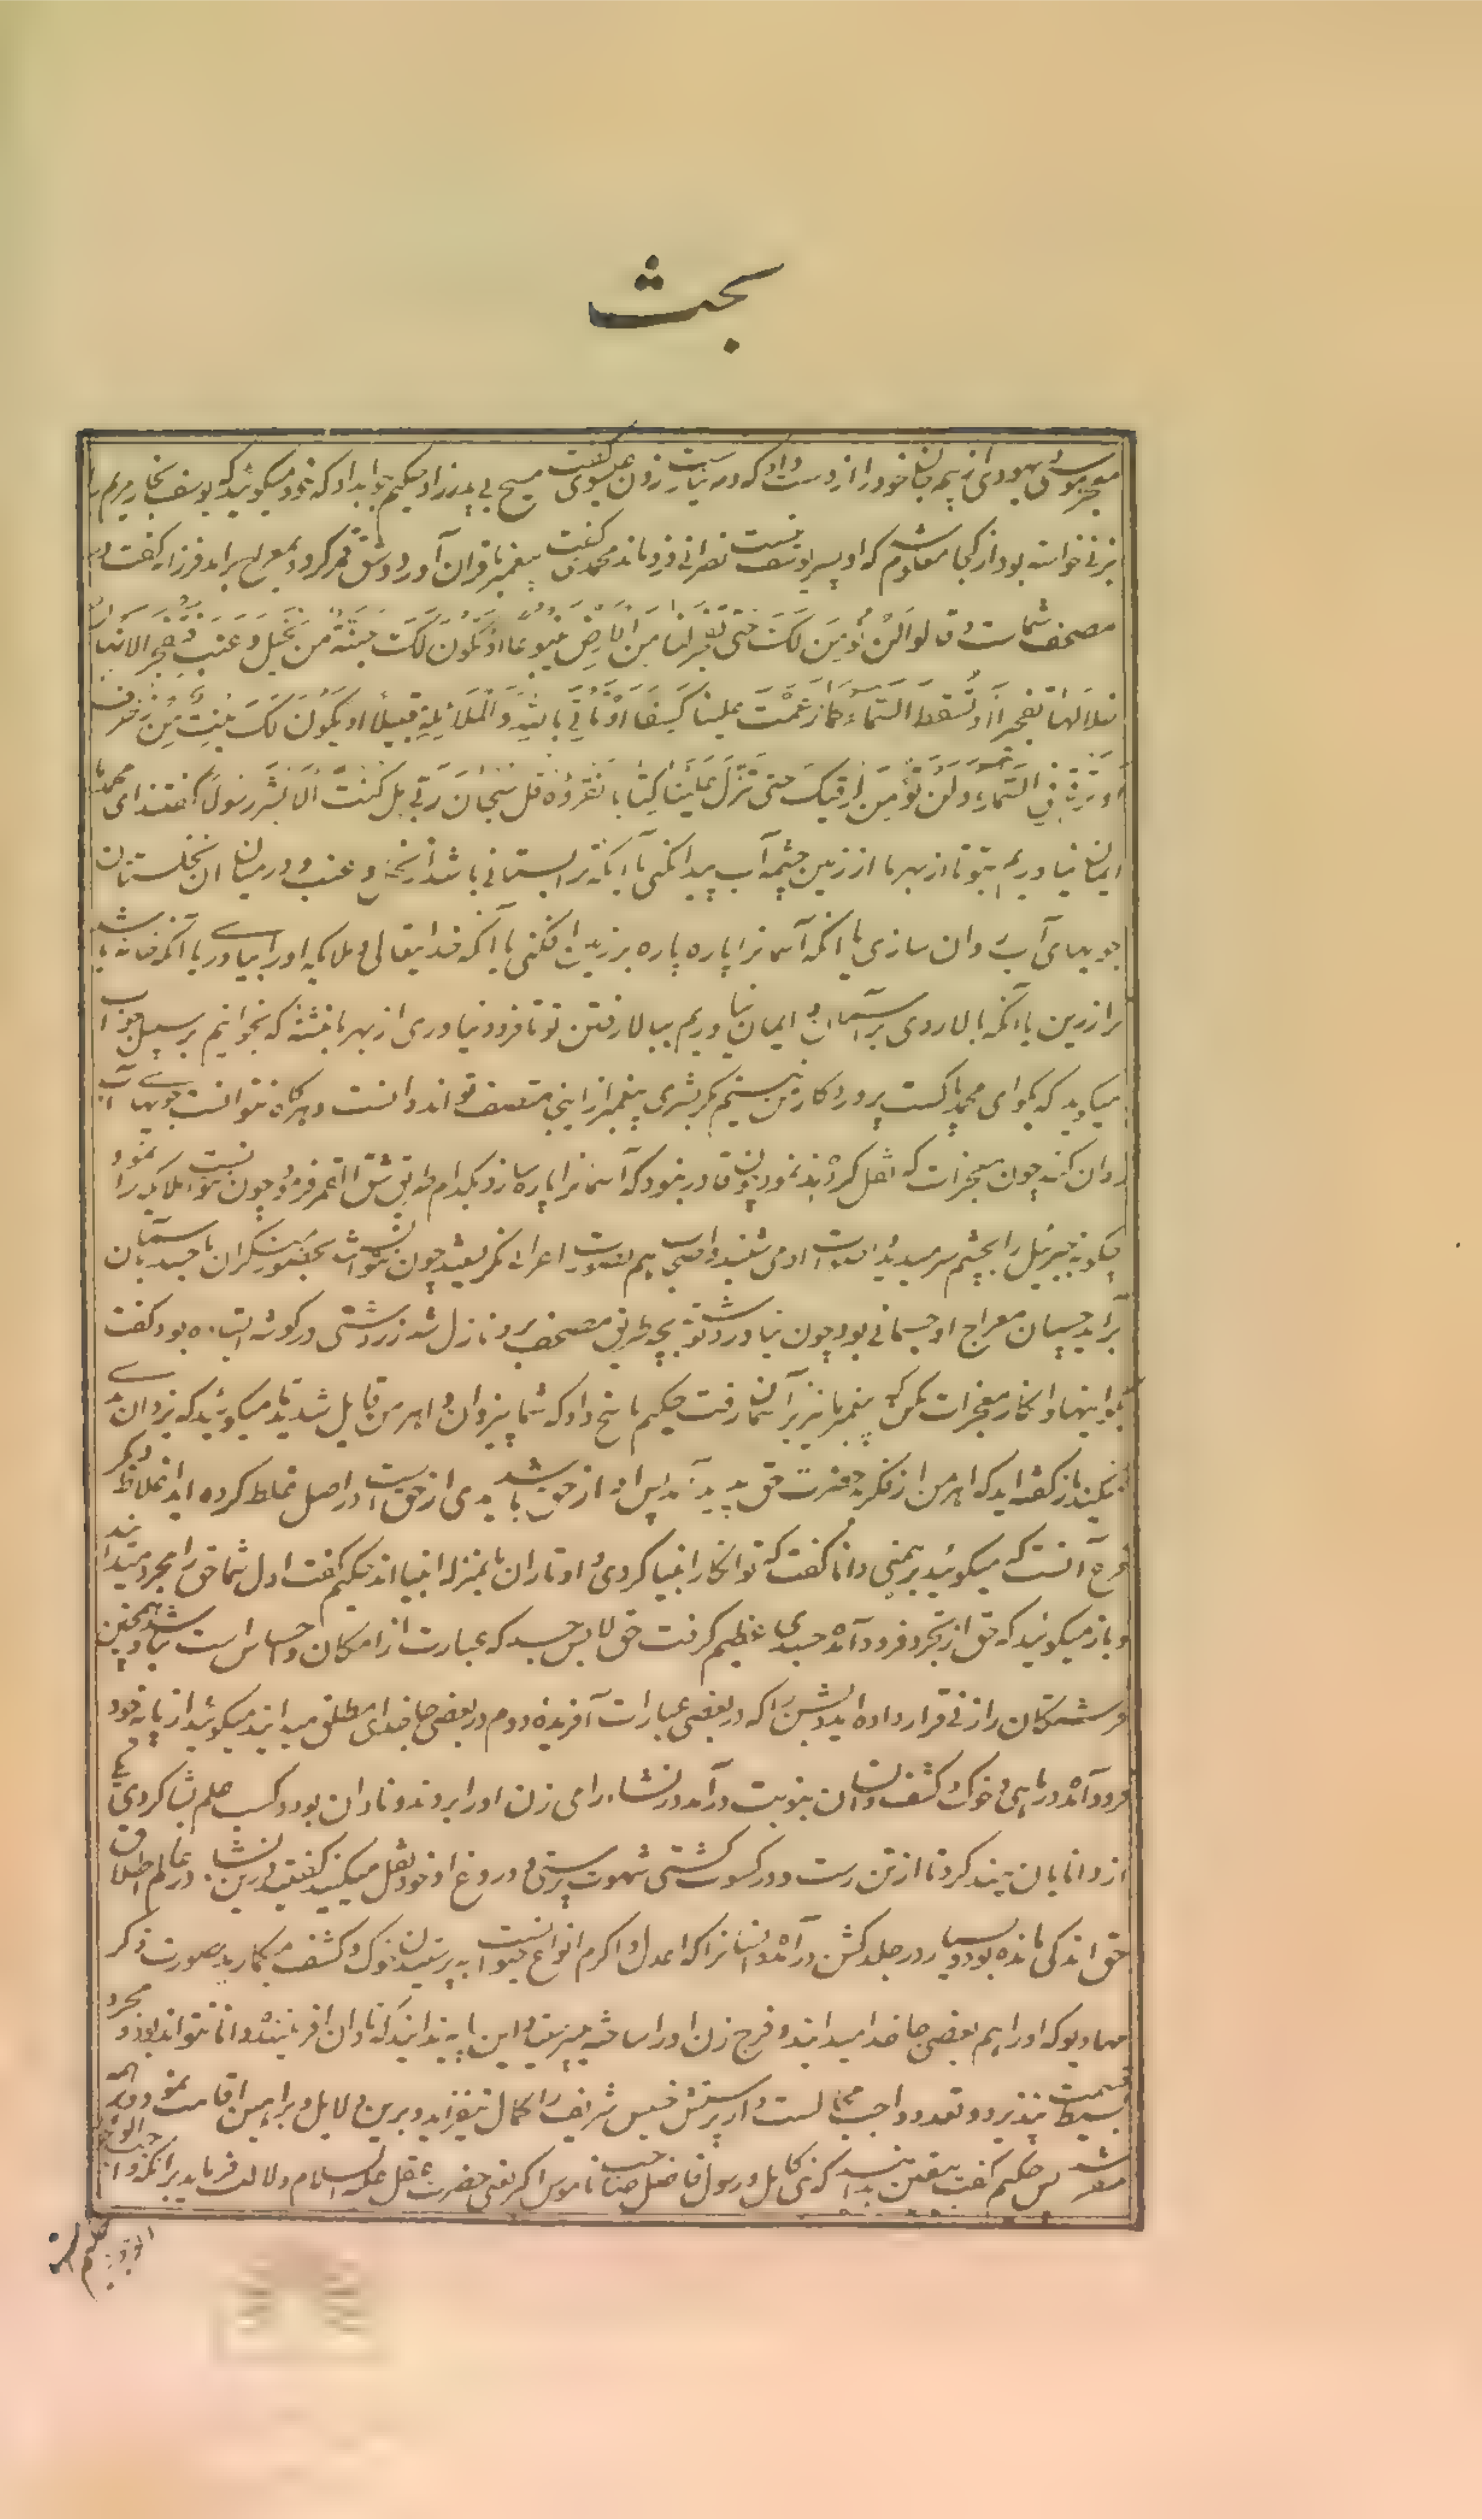 بحث
معجز موسی یهودی از بیم جان خود را از دست داد که در نبات زدن عیسوی گفت مسیح بی پدر زاد حکیم جواب داد که خود میگوئید که یوسف نجار مریم را
بزنی خواسته بود از کجا معلوم شد که او پسر یوسف نیست نصرانی فرو ماند محمدی گفت پیغمبر ما قران آورد و شق قمر کرد و بمعراج برامد فرزانه گفت در
مصحف شماست وقالوا لن نؤمن لک حتی تفجر لنا من الارض ینبوعا او تکون لک جنة من نخیل و عنب فتفجر الانهار
خلالها تفجیرا او تسقط السماء کما زعمت علینا کسفا او تاتی بالله والملائکة قبیلا او یکون لک بیت من زخرف
او ترقی فی السماء ولن نؤمن لرقیک حتی تنزل علینا کتابا نقروه قل سبحان ربی هل کنت الا بشرا رسولا گفتند ای محمد ما
ایمان نیاوریم بتو تا از بهر ما از زمین چشمه آب پیدا کنی یا آنکه ترا بستانی باشد از نخل و عنب و در میان آن نخلستان
جویهای آب روان سازی یا انکه آسمانرا پاره پاره بر زمین افکنی یا آنکه خدایتعالی و ملایکه را بیاوری یا آنکه خانه باشد
ترا از زرین یا آنکه بالا روی بر آسمان و ایمان نیاوریم ببالا رفتن تو تا فرود نیاوری از بهر ما نبشته که بخوانیم بر سبیل جواب
میگوید که بگو ای محمد پاکست پروردگار من نیستم مگر بشری پیغمبر از اینجا منصف تواند دانست هرگاه نتوانست جویهای آب
روان کند چون معجزات که نقل کرده اند نمود و چون قادر نبود که آسمانرا پاره سازد بکدام طریق شق القمر فرمود چون نتوانست ملایکه را نمود
چگونه جبرئیل را بچشم سر میدید و اصحاب هم بصورت اعرابی نگریستند چون نتوانست بحضور منکران با جسد باسمان
براید چسان معراج او جسمانی بود چون نیاورد نوشته بچه طریق مصحف برو نازل شد زردشتی در گوشه ایستاده بود گفت
بگو اینها و انکار معجزات مکن که پیغمبر ما نیز بر آسمان رفت حکیم پاسخ داد که شما بیزدان و اهرمن قایل شده اید میگوئید که یزدان بدی
نکند باز گفته اید که اهرمن از فکر حضرت حق پدید آمد پس او از حق باشد بدی از حق است در اصل غلط کرده اید
آنست که میگوئید برهمنی دانا گفت که تو انکار انبیا کردی و اوتاران ما بمنزله انبیا اند حکیم گفت اول شما حق را مجرد میدانید
و باز میگوئید که حق از تجرد فرود آمده جسدی عظیم گرفت حق لابس جسد که عبارت از امکان و احساس است نباشد و همچنین
فرشتگان را زنی قرار داده اید و بشن را که در بعضی عبارات آفریده دوم در بعضی جا خدای مطلق میدانید میگوئید از پایه خود
فرود آمده در ماهی و خوک و کشف و انسان بنوبت درآمد در نشاء رامی زن او را بردند و نادان بود و کسب علم بشاگردی یکی
از دانایان هند کرد تا از تن رست و در کسوت کشنی شهوت پرستی و دروغ او خود نقل میکنید گفتی درین نشاء در عالم اطلاق
حق اندکی مانده بود و بسیار در جلد کشن درآمده و انسانرا که اعدل و اکرم انواع حیوانست به پرستیدن خوک و کشف میگمارید بصورت ذکر
مهادیو که او را هم بعضی جا خدا میدانید و فرج زن او را ساخته میپرستید و این پایه ندانید که نادان افریننده دانا نتواند بود و مجرد
بسیط قسمت نپذیرد و تعدد واجب محالست و از پرستش خسیس شریف را کمال نیفزاید و برین دلایل و براهین اقامت نمود و برهمن
مقر شد پس حکیم گفت بیقین بدانید که نبی کامل و رسول فاضل صاحب ناموس اکبر یعنی حضرت عقل علیه السلام دلالت فرماید بر آنکه واجب الوجود